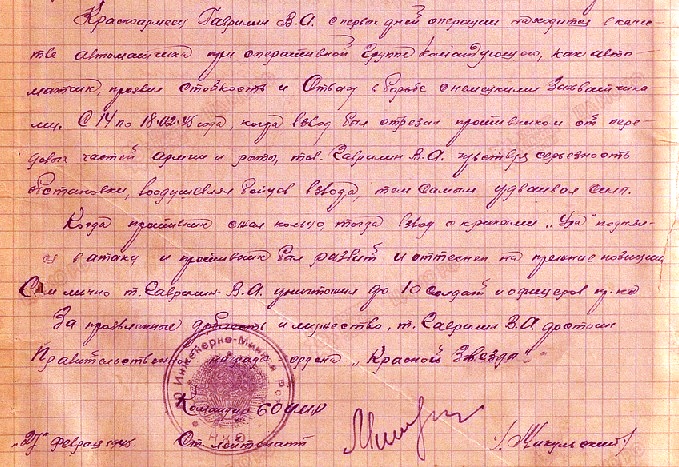 Красноармеец Гаврилин В.А. с первых дней операции находится в каче-
стве автоматчика при оперативной группе командующего, как авто-
матчик проявил стойкость и Отвагу в борьбе с немецкими Захватчика-
ми. С 14 по 18.02.45 года когда взвод был отрезан противником от пере-
довых частей Армии и роты, тов. Гаврилин В.А. чувствуя серьезность
обстановки, воодушевлял бойцов взвода, тем самым удваивая силы.
Когда противник сжал кольцо тогда взвод с криками "Ура" поднял-
ся в атаку и противник был развит и оттеснен на прежние позиции
Сам лично т. Гаврилин В.А. уничтожил до 10 солдат и офицеров пр-ка
За проявленные доблесть и мужество, т. Гаврилин В.А достоин
Правительственной награды ордена "Красной Звезды"
Инженерно-Минная Ро
Командир 60
Ст. лейтенант /Никульский/
"27" февраля